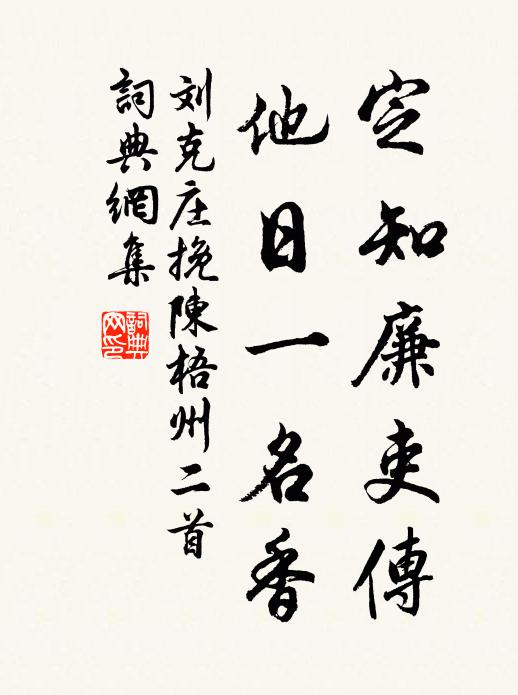 定知廉吏傳
他日一名香
刘克庄挽陳梧州二首
詞典網集
詞典网印